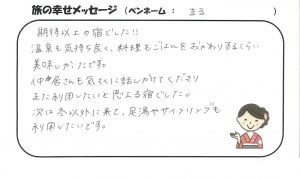 旅の幸せメッセージ (ペンネーム : まる )
期待以上の宿でした!!
温泉も気持ち良く、料理もごはんをおかわりするくらい
美味しかったです。
仲居さんも気さくに話しかけてくださり
また利用したいと思える宿でした。
次は冬以外に来て、足湯やサイクリングも
利用したいです。